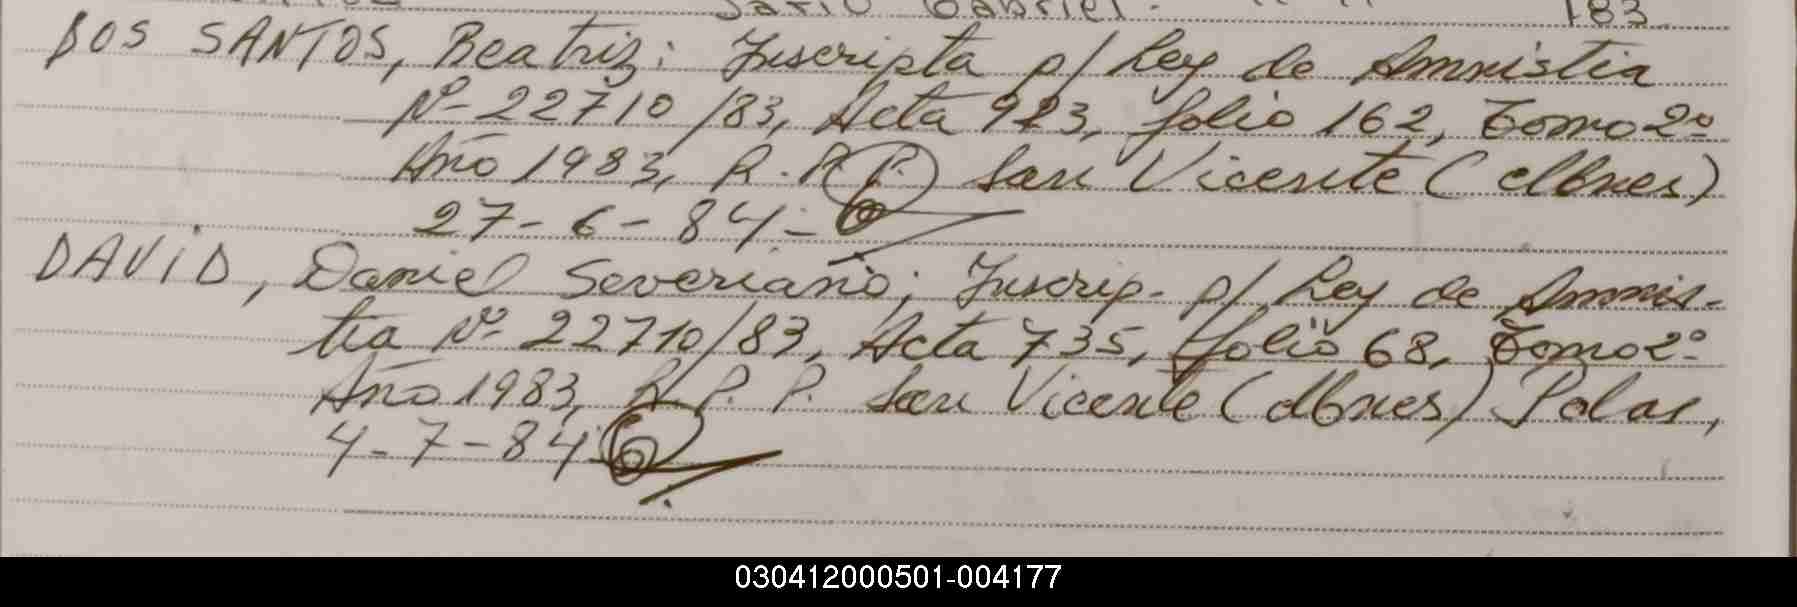 Darío Gabriel. " " 183
DOS SANTOS, Beatriz: Inscripta p/ Ley de Amnistia
Nº 22710/83, Acta 923, folio 162, Tomo 2º
Año 1983, R.P.P. San Vicente (Mnes)
27-6-84-
DAVID, Daniel Severiano; Inscrip. p/ Ley de Amnis-
tia Nº 22710/83, Acta 735, folio 68, Tomo 2º
Año 1983, R.P.P. San Vicente (Mnes) Pdas,
4-7-84
030412000501-004177